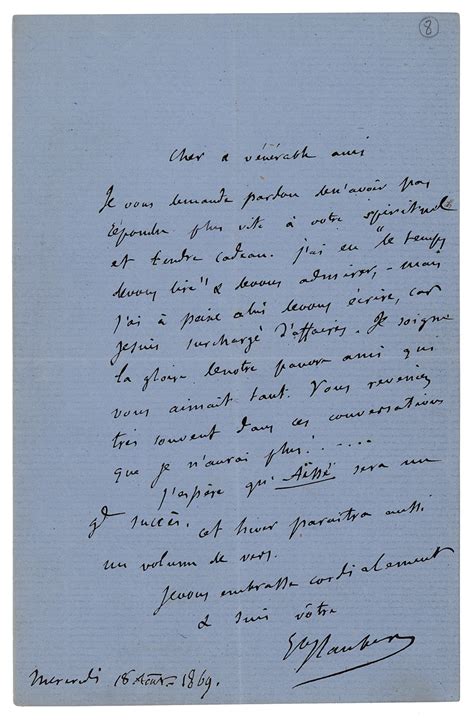 8
Cher & vénérable ami
Je vous demande pardon de n'avoir pas
répondu plus vite à votre spirituel
et tendre cadeau. j'ai eu "le temps
de vous lire" & de vous admirer, – mais
j'ai à peine celui de vous écrire, car
je suis surchargé d'affaires. Je soigne
la gloire de notre pauvre ami qui
vous aimait tant. Vous reveniez
très souvent dans ces conversations
que je n'aurai plus! ....
J'espère qu'Aïssé sera un
gd succès. cet hiver paraîtra aussi
un volume de vers.
Je vous embrasse cordialement
& suis vôtre
Gve Flaubert
Mercredi 18 Août 1869.